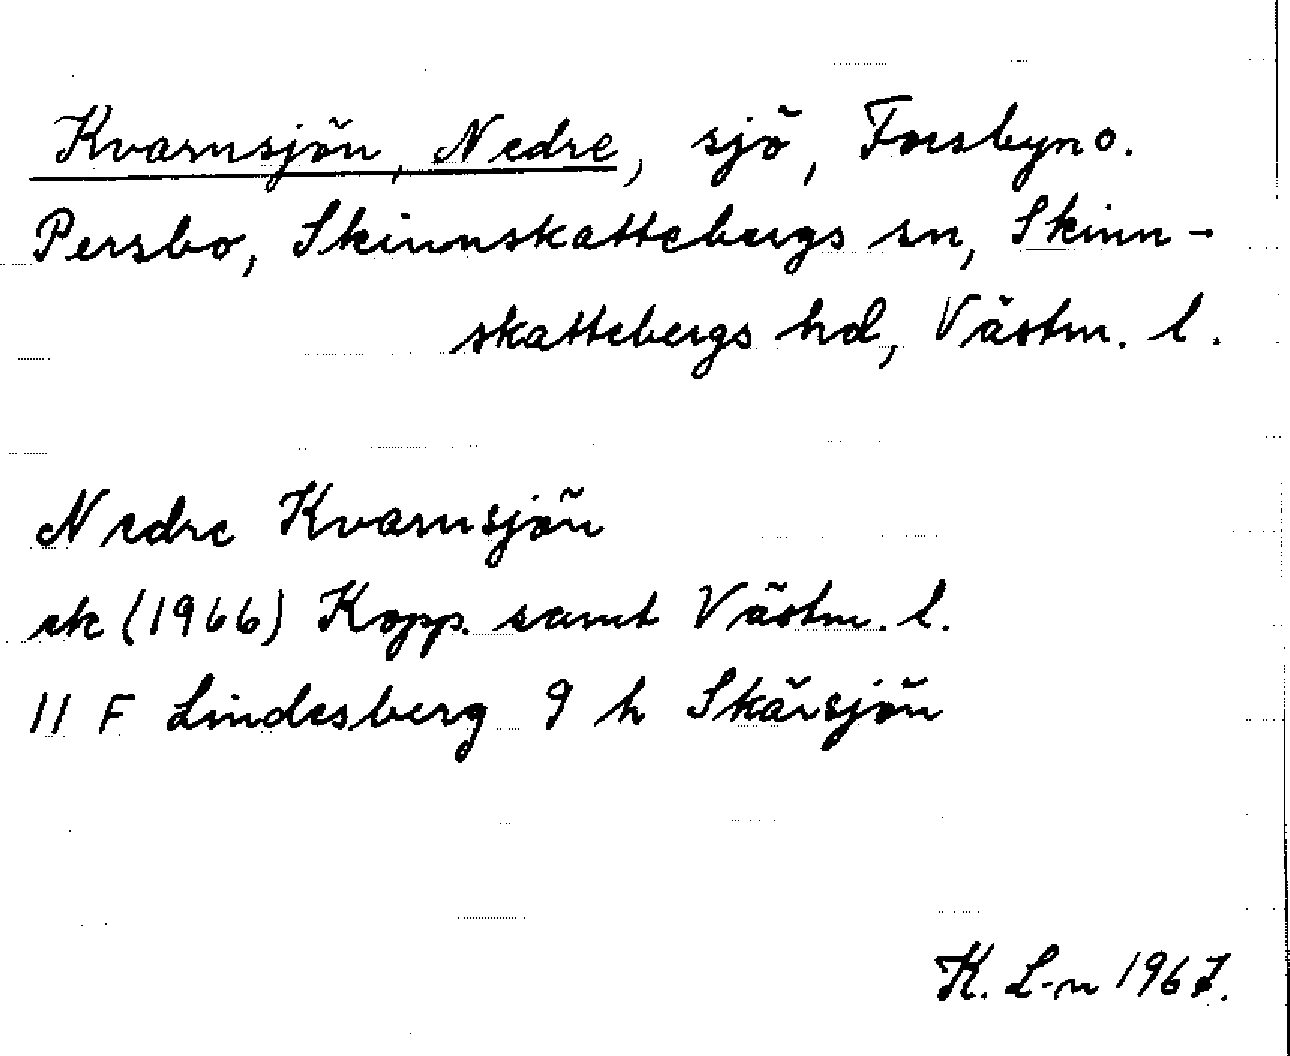 Kvarnsjön, Nedre, sjö, Forsbyn o.
Persbo, Skinnskattebergs sn, Skinn-
skattebergs hd, Västm. l.
Nedre Kvarnsjön
ek (1966) Kopp. samt Västm. l.
11 F Lindesberg 9 h Skärsjön
K. L-n 1967.